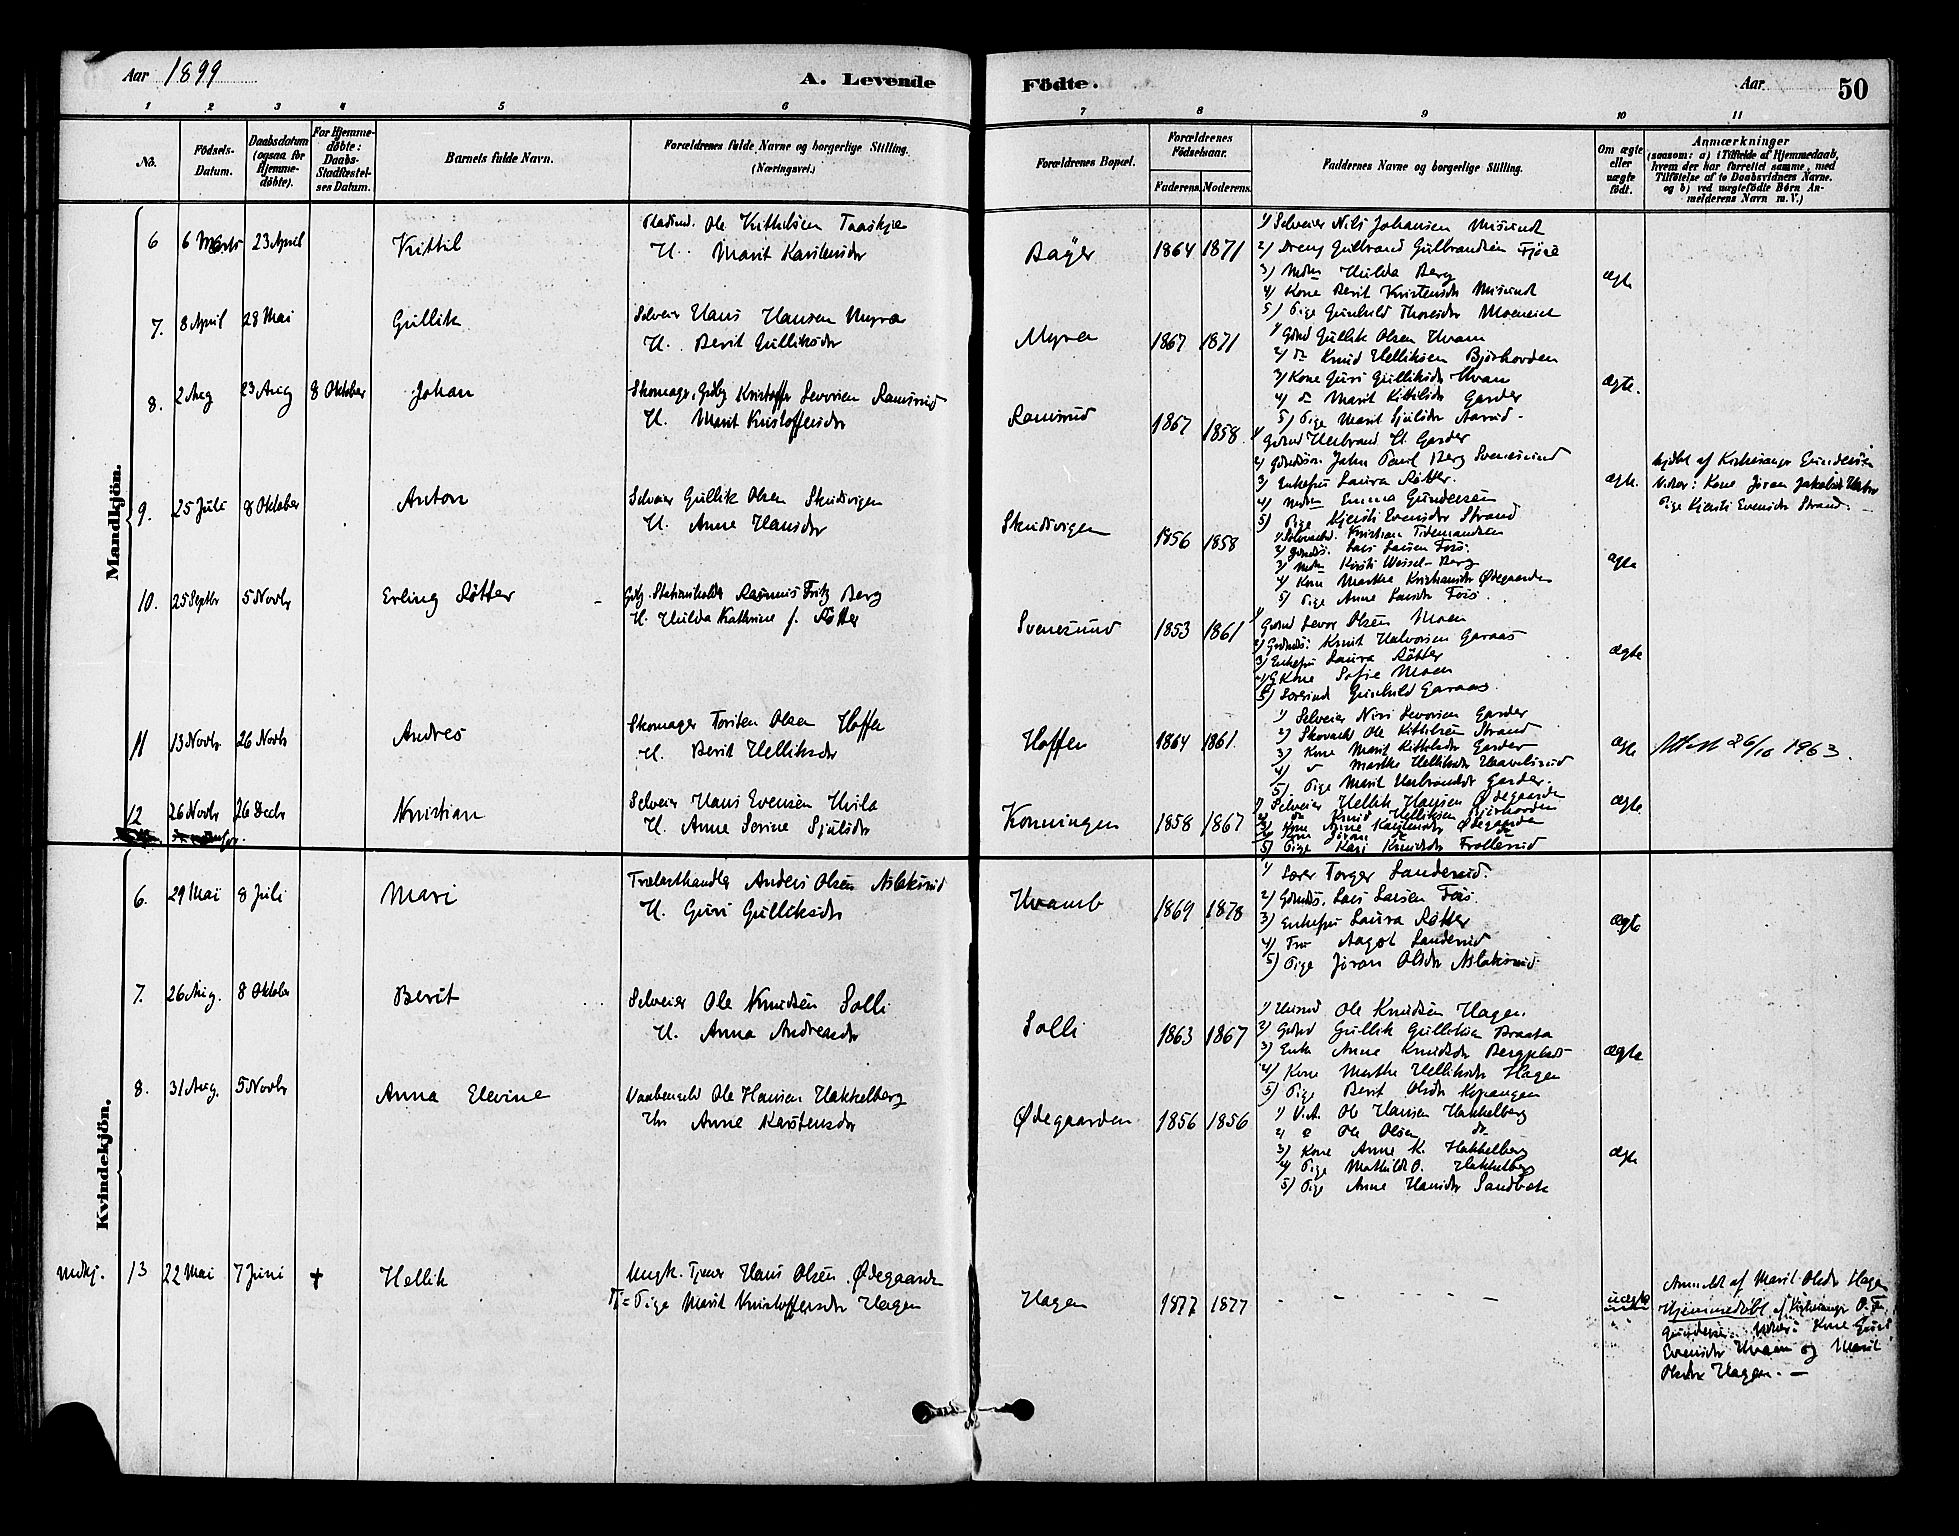 Aar 1899
A. Levende
Födte.
Aar
50
1 2 3 4 5 6 7 8 9 10 11
No.
Födsels-Datum.
Daabsdatum (ogsaa for Hjemme-döbte).
For Hjemme-döbte: Daabs-Stadfæstel-ses Datum.
Barnets fulde Navn.
Forældrenes fulde Navne og borgerlige Stilling. (Næringsvei.)
Forældrenes Bopæl.
Forældrenes Födselsaar.
Faderens. Moderens.
Faddernes Navne og borgerlige Stilling.
Om ægte eller uægte födt.
Anmærkninger
(saasom: a) i Tilfælde af Hjemmedaab, hvem der har forrettet samme, med Tilföielse af to Daabsvidners Navne, og b) ved uægtefödte Börn An-melderens Navn m. V.)
Mandkjön.
6 6 Marts 23 April Kittil
Ole Kittilsen Taaskje
H. Marit Karstensdr
Bager 1864 1871
1) Selveier Nils Johansen Misund
2) Dreng Gulbrand Gulbrandsen Fjöse
3) Mdm Hilda Berg
4) Kone Berit Kristensdr Misund
5) Pige Gunhild Thorsdr Moeneien
ægte
7. 8 April 28 Mai Gullik
Selveier Hans Hansen Myra
H. Berit Gulliksdr
Myra 1867 1871
1) Gbrd Gullik Olsen Hvam
2) do Knud Helliksen Björhovden
3) Kone Guri Gulliksdr Hvam
4) do Marit Kittilsdr Garder
5) Pige Marit Sjulsdr Aasrud
ægte.
8. 2 Aug 23 Aug 8 Oktober Johan
Skomager, Gbrg Kristoffer Levorsen Ramsrud
H. Marit Kristoffersdr
Ramsrud 1867 1858
1) Gbrd Herbrand H. Garder
2) Gbrdssön John Paul Berg Svenesund
3) Enkefru Laura Rötter.
4) Mdm Emma Gundersen
5) Pige Kjersti Evensdr Strand
ægte.
hjdbt af Kirkesanger Gundersen
Vidner: Kone Jöran Jakobsdr
Pige Kjersti Evensdr Strand.
9. 25 Juli 8 Oktober Anton
Selveier Gullik Olsen Skudsvigen
H. Anne Hansdr
Skudsvigen 1856 1858
1) Kristian Tidemandsen
2) Gbrds. Lars Larsen Fös.
3) Mdm Kirsti Wessel-Berg
4) Kone Marthe Kristiansdr Ødegaarden
5) Pige Anne Larsdr Fös.
ægte
10. 25 Septbr 5 Novbr Erling Rötter
Gbrg. Stationsholder Rasmus Fritz Berg
H. Hilda Kathrine f. Rötter
Svenesund 1853 1861
1) Gbrd Levor Olsen Moen
2) Gbrds: Knut Halvorsen Garaas
3) Enkefru Laura Rötter
4) GKone Sofie Moen
5) Gunhild Garaas
ægte
11 13 Novbr 26 Novbr Andres
Skomager Torsten Olsen Hoffen
H. Berit Helliksdr
Hoffen 1864 1861.
1) Selveier Niri Levorsen Garder
2) Ole Kittilsen Strand
3) Kone Marit Kittilsdr Garder
4) Marthe Helliksdr
5) Pige Marit Herbrandsdr Garder.
ægte
Attest 26/10 1963.
12 26 Novbr 26 Decbr Kristian
Selveier Hans Evensen Hvila
H. Anne Serine Sjulsdr
Konningen 1858 1867
1) Selveier Hellik Hansen Ødegaarden
2) do Knud Helliksen Björhovden
3) Kone Anne Karstensdr Ødegaarden
4) Kone Jöran do
5) Pige Kari Knudsdr Trollerud
ægte
Kvindekjön.
6. 29 Mai 8 Juli Mari
Trælasthandler Anders Olsen Aslaksrud
H. Guri Gulliksdr
Hvamb 1869 1878
1) Lærer Torger Landerud.
2) Gbrds. Lars Larsen Fös.
3) Enkefru Laura Rötter
4) Fru Aagot Landerud
5) Pige Jöran Olsdr Aslaksrud
ægte
7. 26 Aug. 8 Oktober Berit
Selveier Ole Knudsen Solli
H. Anna Andreasdr
Solli 1863 1867
1) Husmd Ole Knudsen Hagen.
2) Gbrd Gullik Gulliksen Braata
3) Enke Anne Knudsdr Bergplads
4) Kone Marthe Helliksdr Hagen
5) Pige Berit Olsdr Kopangen
ægte
8. 31 Aug. 5 Novbr Anna Elevine
Vaabensmd Ole Hansen Hakkelberg
Hu Anne Karstensdr
Ødegaarden 1856 1856
1) V.A. Ole Hansen Hakkelberg
2) Ole Olsen do
3) Kone Anne K. Hakkelberg
4) Pige Mathilde O. Hakkelberg
5) Pige Anne Hansdr Sandbæk
ægte
Mdkj. 13 22 Mai 7 Juni † Hellik
Ungk. Tjener Hans Olsen Ødegaarden
Pige Marit Kristoffersdr Hagen
Hagen 1877 1877
- - - - -
uægte
Anmeldt af Marit Olsdr Hagen
Hjemmedöbt af Kirkesanger O. T.
Gundersen. Vidner: Kone Guri
Evensdr Hvam og Marit
Olsdr Hagen. —